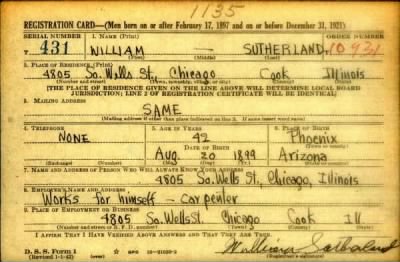 1135
REGISTRATION CARD—(Men born on or after February 17, 1897 and on or before December 31, 1921)
SERIAL NUMBER 1. NAME (Print) ORDER NUMBER
T 431 WILLIAM — SUTHERLAND 10921
2. PLACE OF RESIDENCE (Print)
4805 So. Wells St. Chicago Cook Illinois
(Number and street) (Town, township, village, or city) (County) (State)
[THE PLACE OF RESIDENCE GIVEN ON THE LINE ABOVE WILL DETERMINE LOCAL BOARD
JURISDICTION; LINE 2 OF REGISTRATION CERTIFICATE WILL BE IDENTICAL]
3. MAILING ADDRESS
SAME
[Mailing address if other than place indicated on line 2. If same insert word same]
4. TELEPHONE 5. AGE IN YEARS 6. PLACE OF BIRTH
NONE 42 Phoenix
DATE OF BIRTH
Aug. 20 1899 Arizona
(Exchange) (Number) (Mo.) (Day) (Yr.) (State or country)
7. NAME AND ADDRESS OF PERSON WHO WILL ALWAYS KNOW YOUR ADDRESS
4805 So. Wells St., Chicago, Illinois
8. EMPLOYER'S NAME AND ADDRESS
Works for himself — carpenter
9. PLACE OF EMPLOYMENT OR BUSINESS
4805 So. Wells St. Chicago Cook Ill
(Number and street or R. F. D. number) (Town) (County) (State)
I AFFIRM THAT I HAVE VERIFIED ABOVE ANSWERS AND THAT THEY ARE TRUE.
D. S. S. Form 1
(Revised 1-1-42) GPO William Sutherland